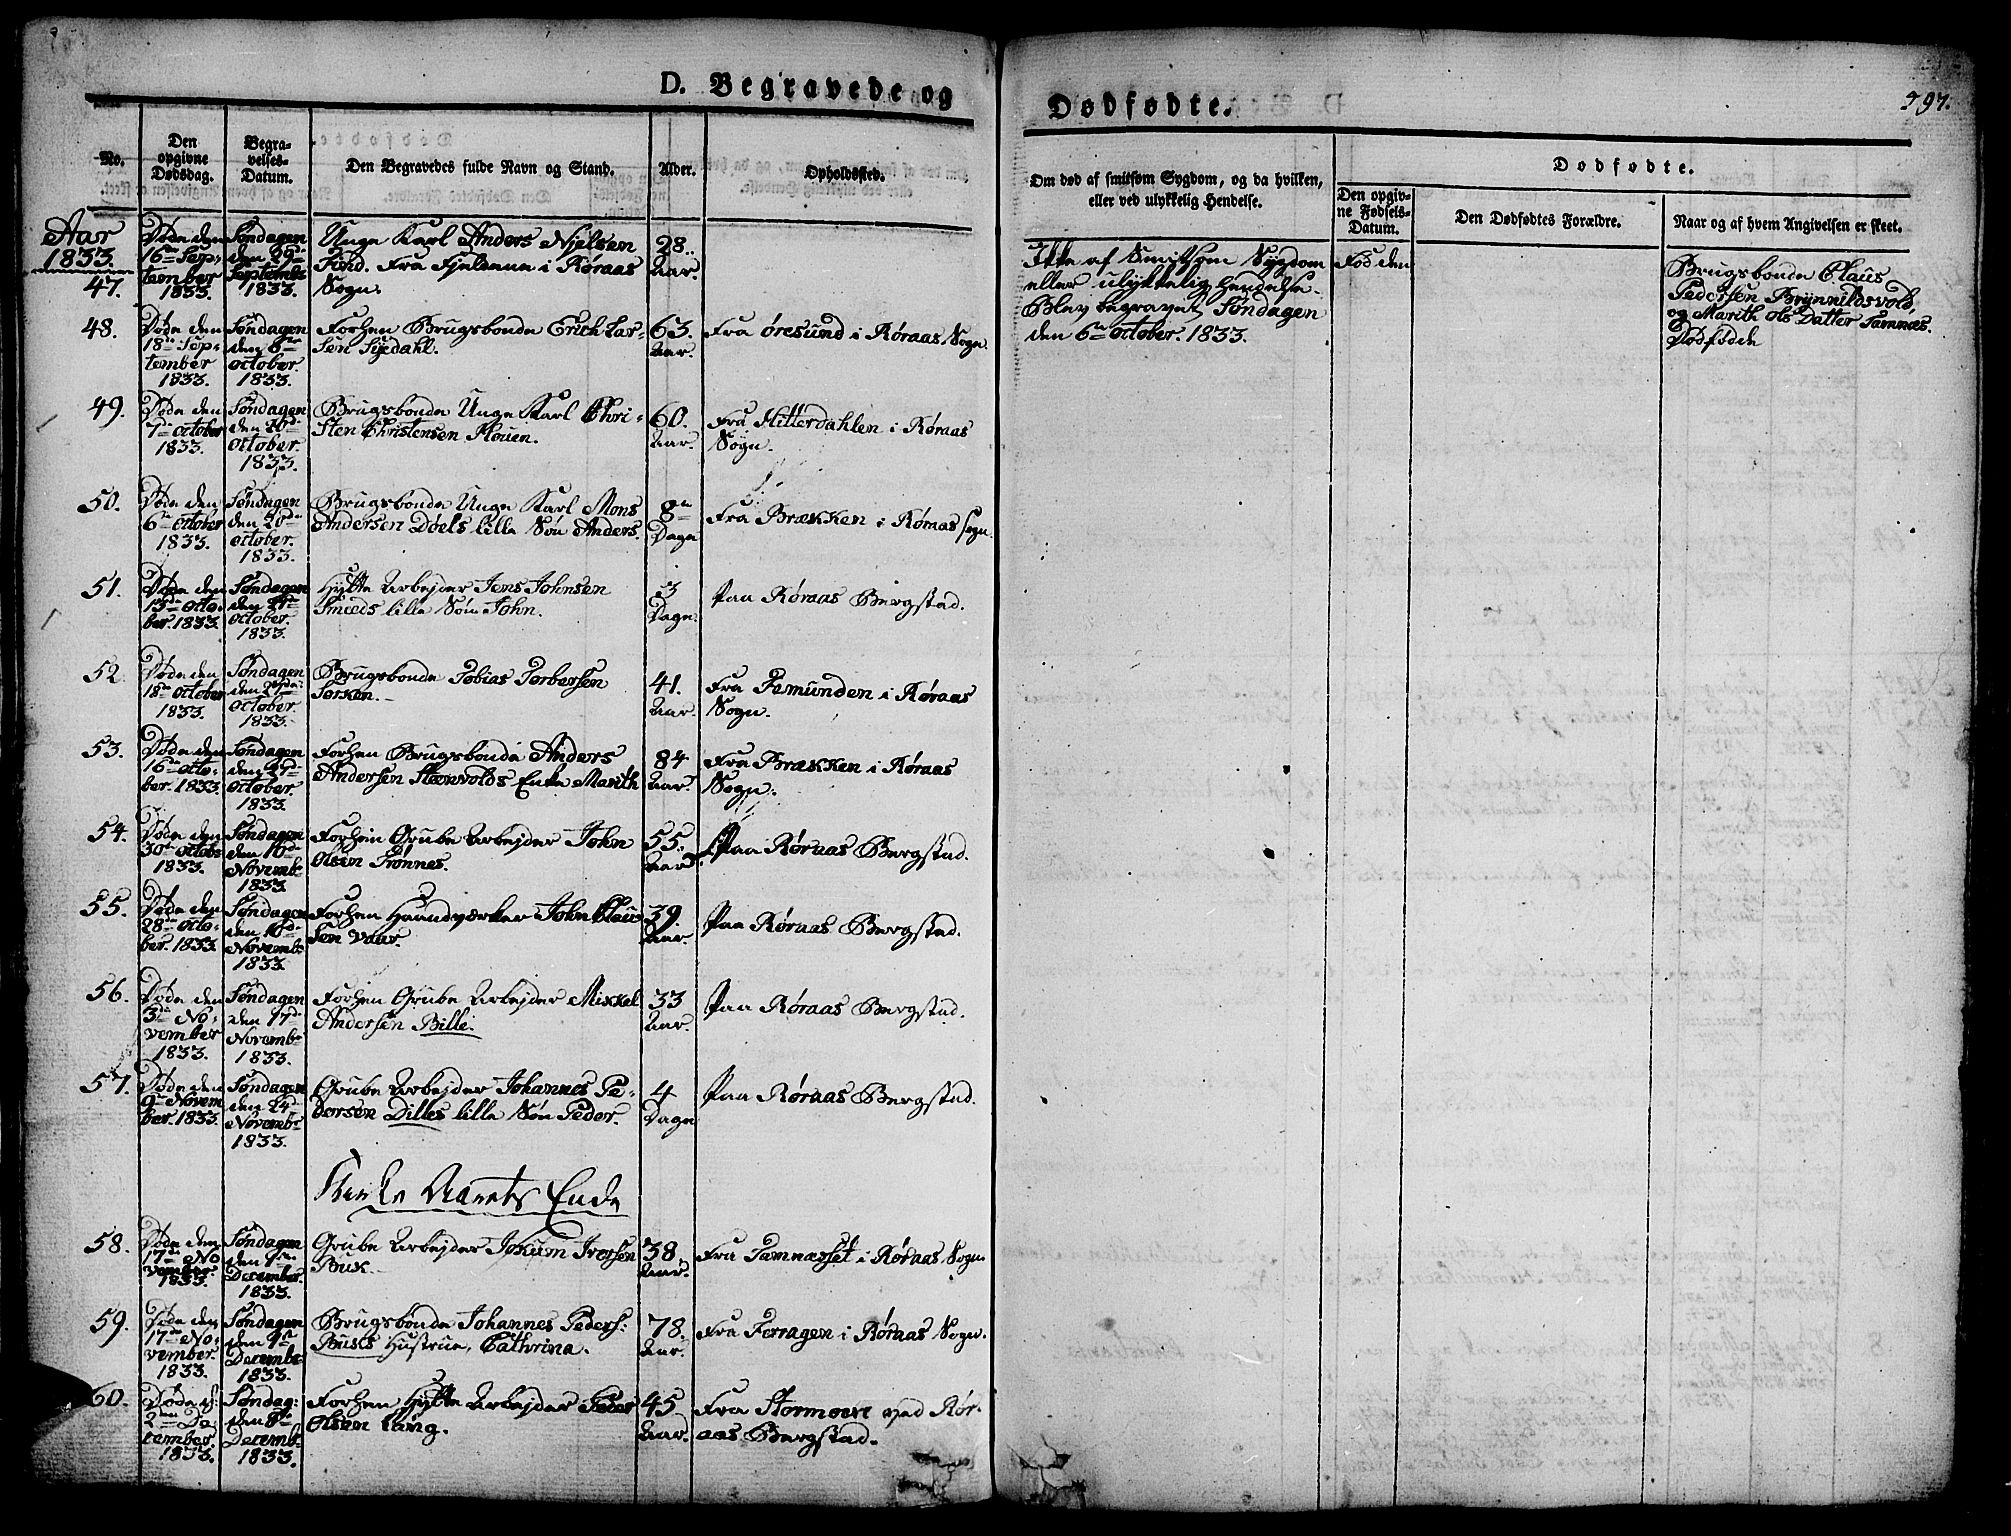 D. Begravede og
Dødfødte.
497.
No.
Den
opgivne
Dødsdag.
Begra-
velses-
Datum.
Den Begravedes fulde Navn og Stand.
Alder.
Opholdssted.
Om død af smitsom Sygdom, og da hvilken,
eller ved ulykkelig Hendelse.
Dødfødte.
Den opgiv-
ne Fødsels-
Datum.
Den Dødfødtes Forældre.
Naar og af hvem Angivelsen er skeet.
Aar
1833.
47.
Døde den
16de Sep-
tember
1833.
Søndagen
den 29de
Septembr
1833.
Unge Karl Anders Nielsen
Fra Fjeldene i Røraas
Sogn.
28..
Aar.
Ikke af Smitsom Sygdom
eller ulykkelig Hendelse.
Blev begravet Søndagen
den 6te October. 1833.
Fød den
Brugsbonde Claus
Pedersen Brynnildsvold,
og Marith Ols Datter Tamnæs.
Dødfødde
48.
Døde den
18de Sep-
tember
1833.
Søndagen
den 6te
October.
1833.
Forhen Brugsbonde Erich Lar-
sen Sysedahl.
63.
Aar.
Fra Øresund i Røraas Sogn.
49.
Døde den
7de October
1833.
Søndagen
den 20de
October.
1833.
Brugsbonde Unge Karl Chri-
sten Christensen Flouen.
60.
Aar.
Fra Hitterdahlen i Røraas
Sogn.
50.
Døde den
6te October
1833.
Søndagen
den 20de
October.
1833.
Brugsbonde Unge Karl Mons
Andersen Doels lille Søn Anders.
8te
Dage
Fra Brækken i Røraas sogn.
51.
Døde den
13de Octo-
ber. 1833.
Søndagen
den 27de
October.
1833.
Hytte Arbejder Jens Johnsen
Smeds lille Søn John.
3
Dage.
Paa Røraas Bergstad.
52
Døde den
18de October
1833.
Søndagen
den 27de
October
1833.
Brugsbonde Tobias Torbersen
Sorken.
41.
Aar.
Fra Femunden i Røraas
Sogn.
53.
Døde den
16de Octo-
ber. 1833.
Søndagen
den 27de
October.
1833.
Forhen Brugsbonde Anders
Andersen Steenvolds Enke Marith
84
Aar.
Fra Brækken i Røraas
Sogn.
54.
Døde den
30de Octobr
1833.
Søndagen
den 10de
Novemb.
1833.
Forhen Grube Arbejder John
Olsen Trønnes.
55..
Aar.
Paa Røraas Bergstad.
55.
Døde den
28de Octo-
ber. 1833.
Søndagen
den 10de
Novemb.
1833.
Forhen Haandværker John Clau
sen Vaur.
39.
Aar.
Paa Røraas Bergstad.
56.
Døde den
3de No-
vember
1833.
Søndagen
den 17de
Novemb.
1833.
Forhen Grube Arbejder Mikkel
Andersen Bille.
33
Aar.
Paa Røraas Bergstad.
57.
Døde den
9de Novem
ber. 1833.
Søndagen
den 24de
Novemb.
1833.
Grube Arbejder Johannes Pe-
dersen Dilles lille Søn Peder.
4
Dage
Paa Røraas Bergstad.
Kirke Aarets Ende
58.
Døde den
17de No
vember.
1833.
Søndagen
den 1ste
December.
1833.
Grube Arbejder Jokum Iversen
Busk.
38.
Aar.
Fra Tamnæsset i Røraas Sogn
59.
Døde den
17de No-
vember.
1833.
Søndagen
den
Decembr
1833.
Brugsbonde Johannes Peders:
Busks Hustrue, Cathrina.
78.
Aar.
Fra Ferragen i Røraas Sogn.
60.
Døde d:
2den De-
cember.
1833.
Søndag:
den 8de
Decemb.
1833.
Forhen Hytte Arbejder Peder
Olsen Lang.
45
Aar.
Fra Stormoen ved Rør-
aas Bergstad.